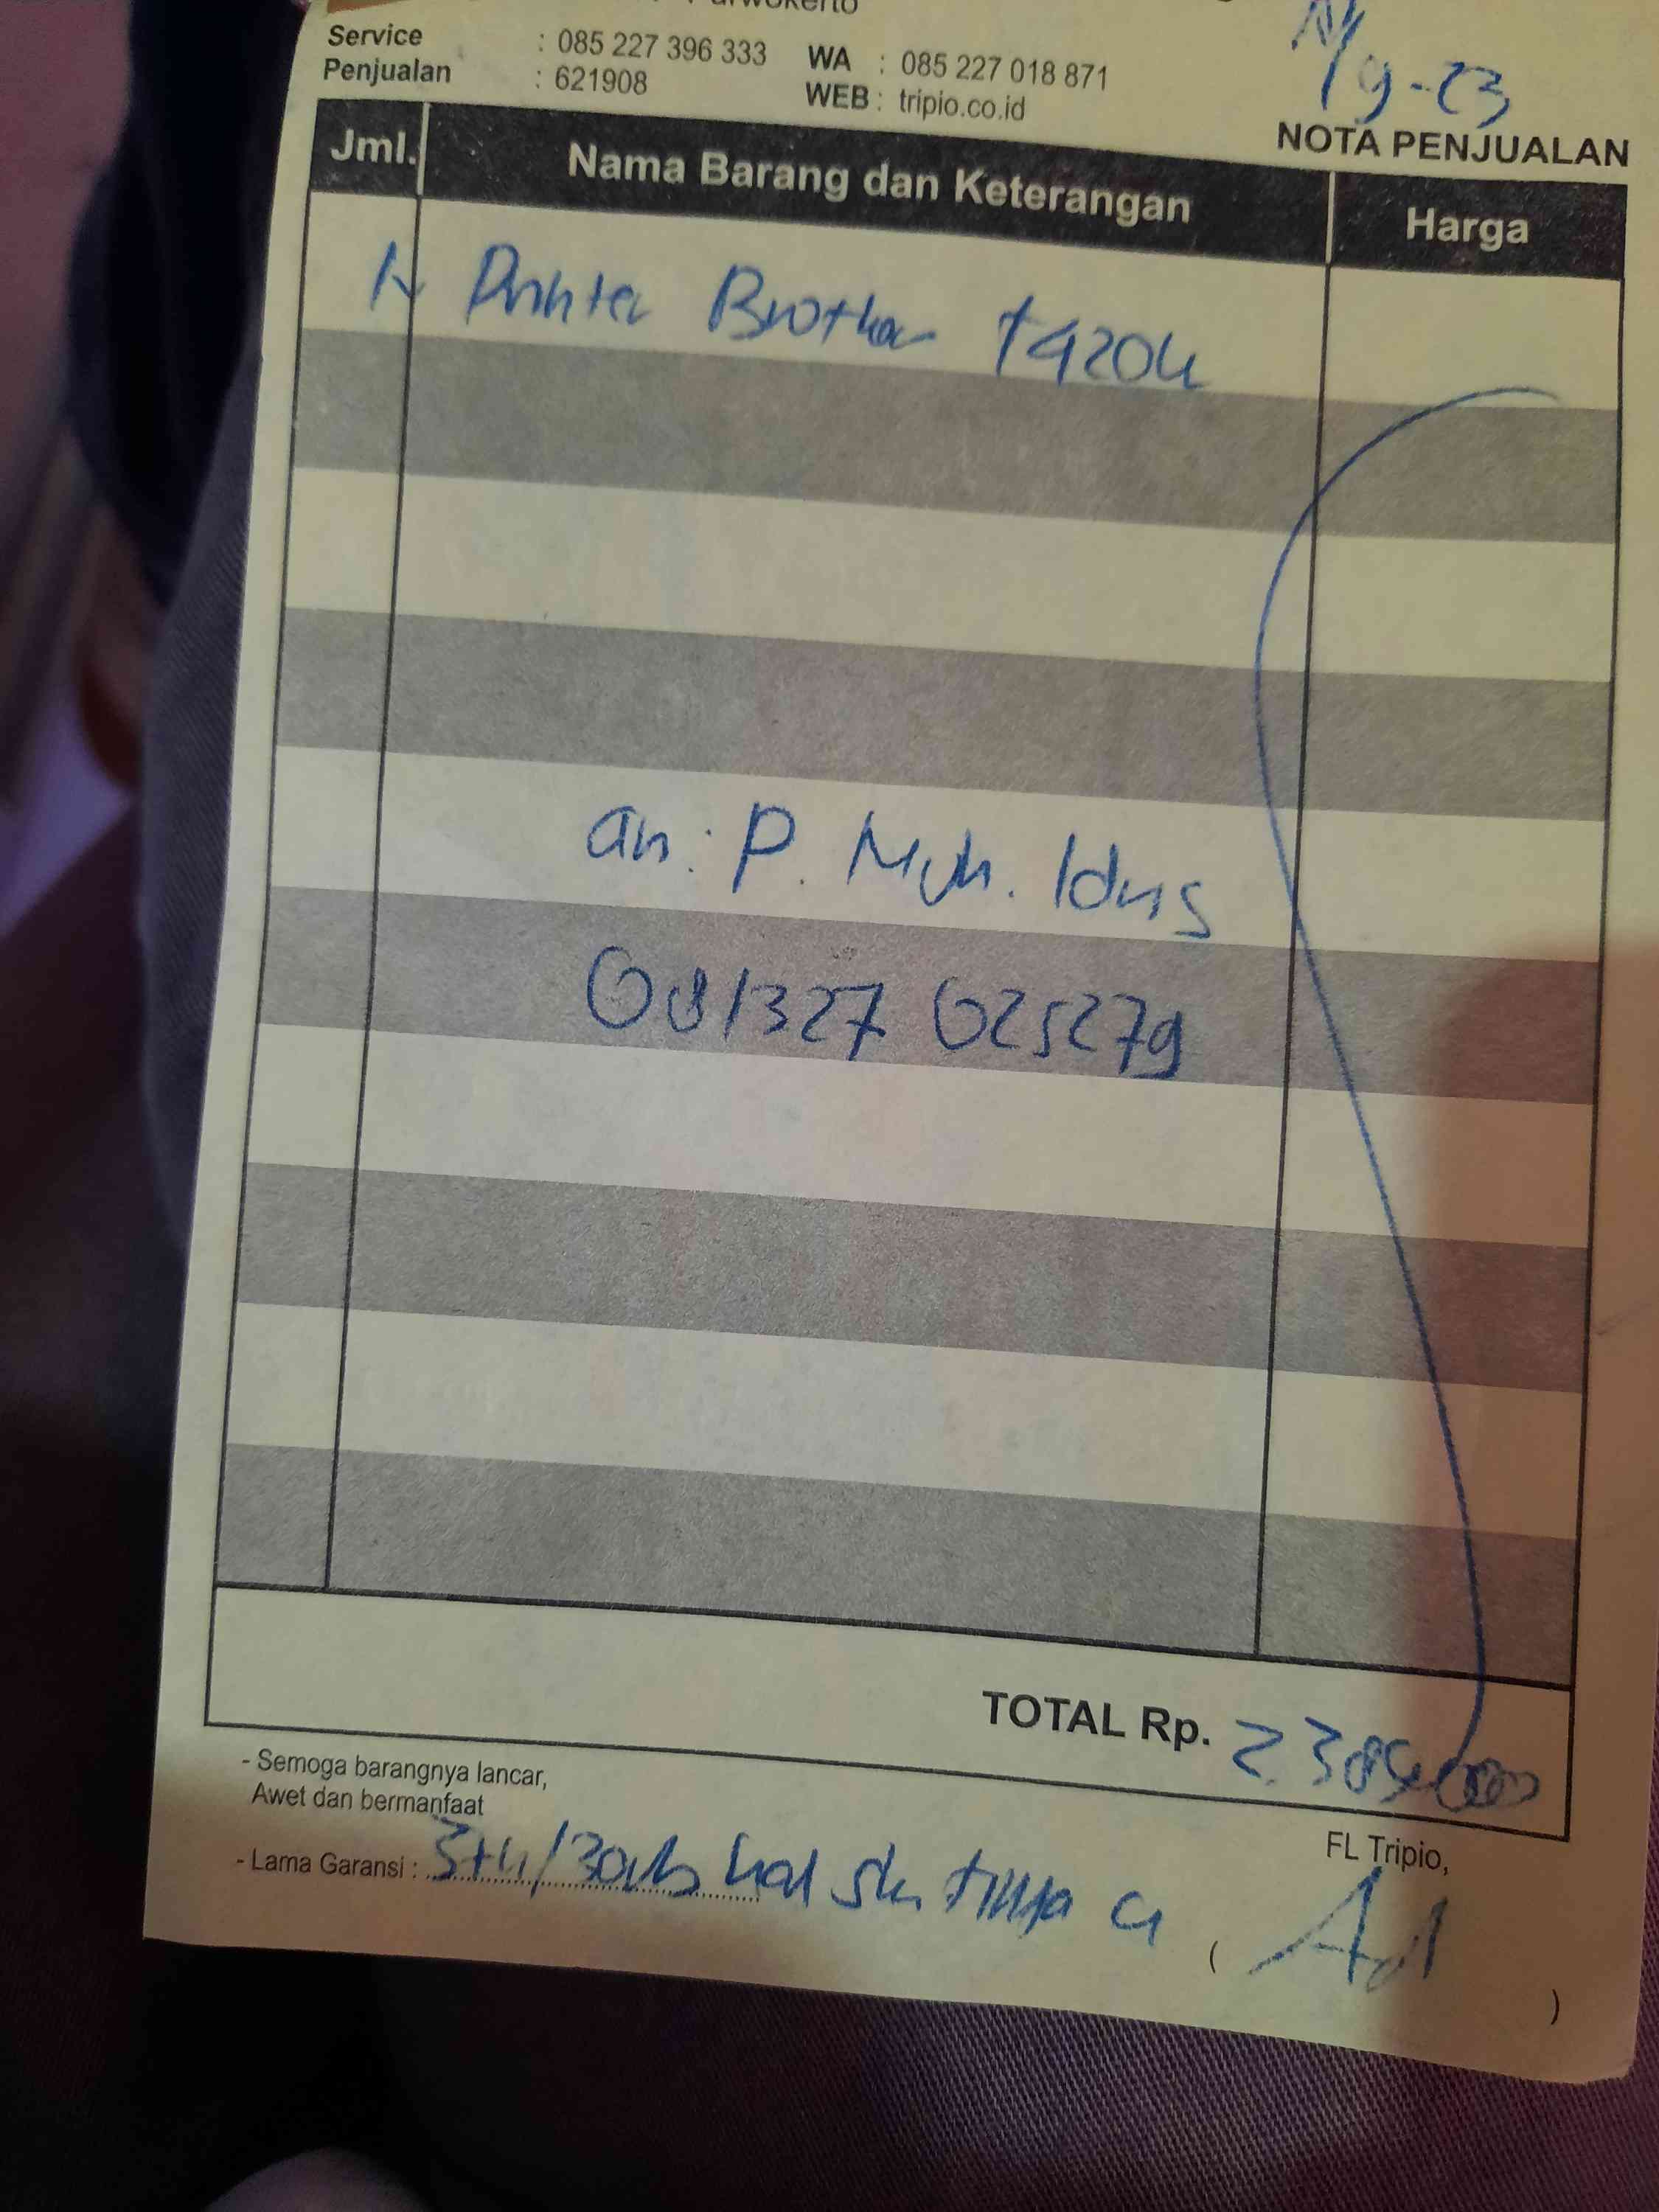 Purwokerto
Service : 085 227 396 333 WA : 085 227 018 871
Penjualan : 621908 WEB : tripio.co.id
/9-23
NOTA PENJUALAN
Jml. Nama Barang dan Keterangan Harga
1 Printer Brother T420W
an: P. Muh. Idris
081327 025279
TOTAL Rp. 2.385.000
- Semoga barangnya lancar,
Awet dan bermanfaat
FL Tripio,
- Lama Garansi : 3th/30rb
( )